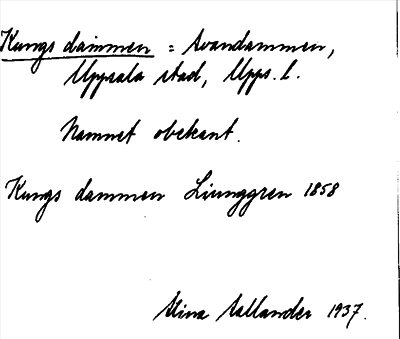 Kungs dammen = Svandammen,
Uppsala stad, Upps. l.
Namnet obekant.
Kungs dammen Ljunggren 1858
Stina Sallander 1937.